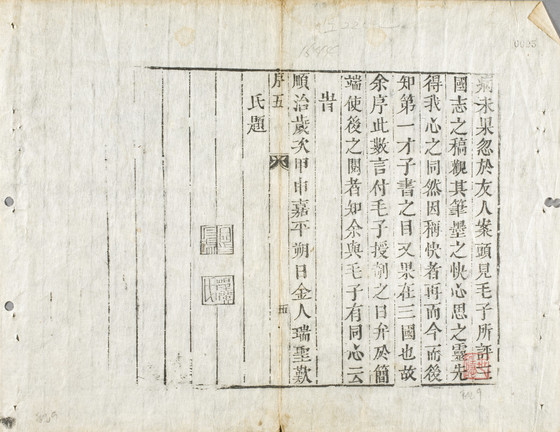 未果忽於友人案頭見毛子所評三
國志之稿觀其筆墨之快心思之靈先
得我心之同然因稱快者再而今而後
知第一才子書之目又果在三國也故
余序此數言付毛子授剞之日弁於簡
端使後之閱者知余與毛子有同心云
旹
順治歲次甲申嘉平朔日金人瑞聖歎
序五
氏題